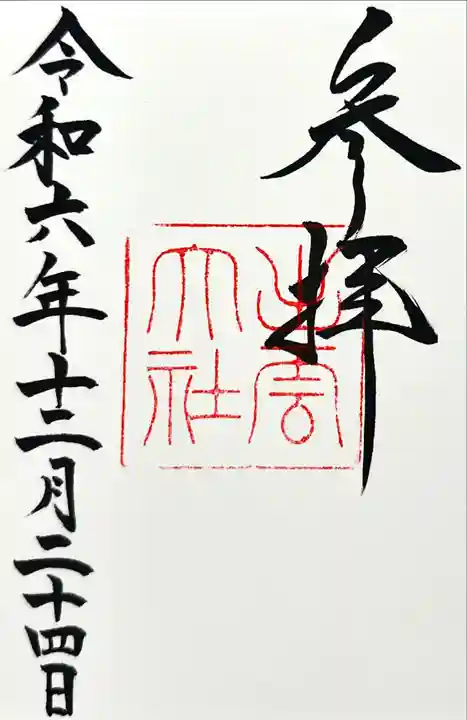 参拝
出雲
大社
令和六年十二月二十四日